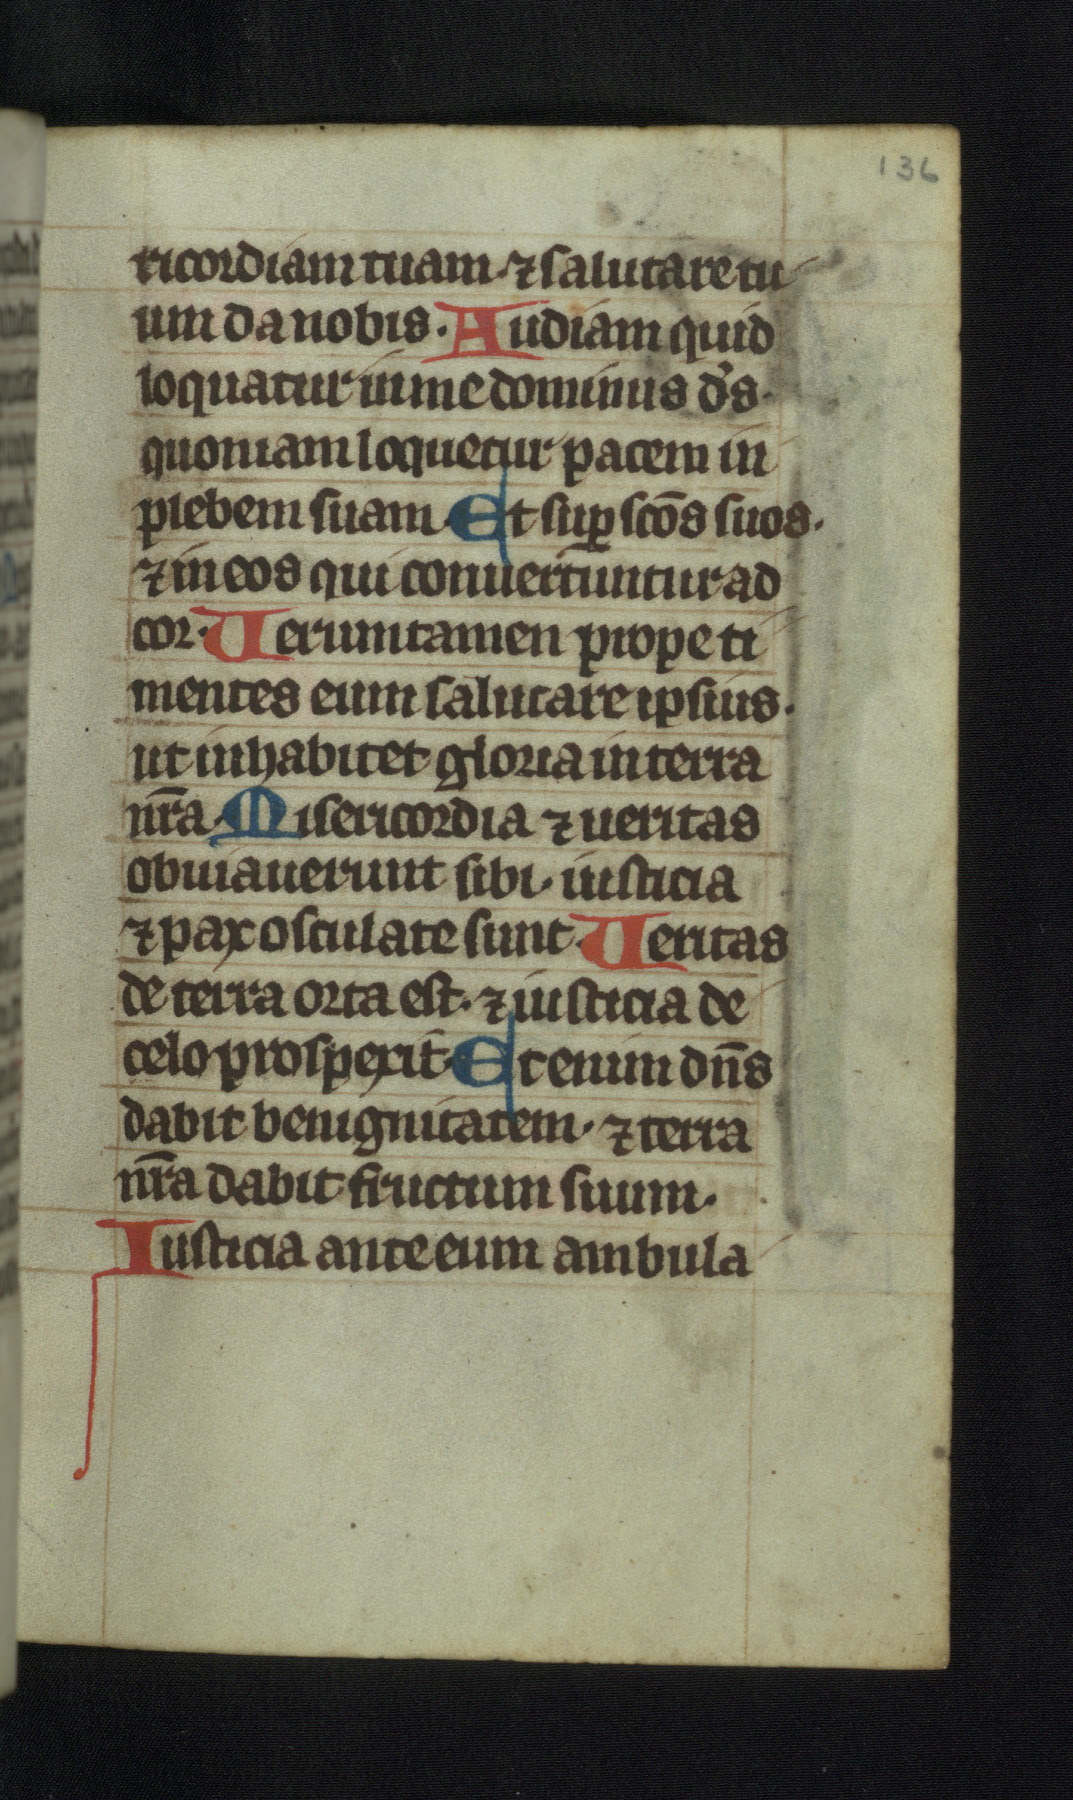 136
ricordiam tuam · ⁊ salutare tu
um da nobis · Audiam quid
loquatur in me dominus d̄s ·
quoniam loquetur pacem in
plebem suam · Et suꝑ sc̄os suos ·
⁊ in eos qui conuertuntur ad
cor · Uerumtamen prope ti
mentes eum salutare ipsius ·
ut inhabitet gloria in terra
nr̄a · Misericordia ⁊ ueritas
obuiauerunt sibi · iusticia
⁊ pax osculate sunt · Ueritas
de terra orta est · ⁊ iusticia de
celo prosperit · Et enim dn̄s
dabit benignitatem · ⁊ terra
nr̄a dabit fructum suum ·
Iusticia ante eum ambula